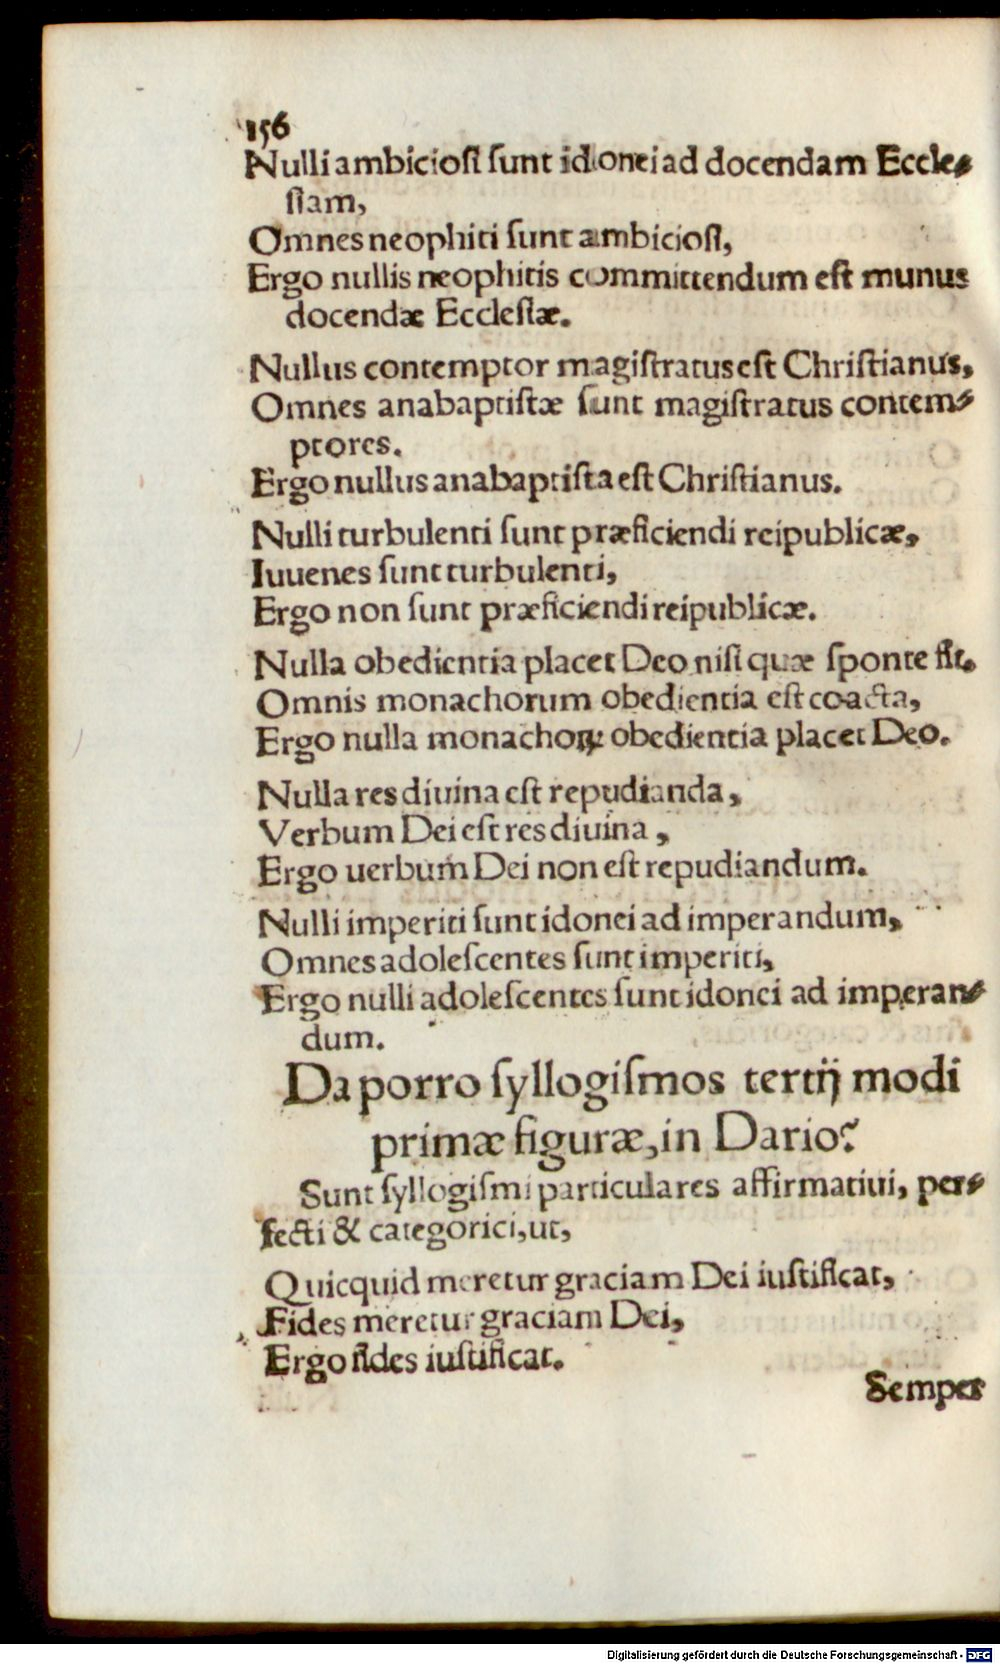 156
Nulli ambiciosi sunt idonei ad docendam Eccle-
siam,
Omnes neophiti sunt ambiciosi,
Ergo nullis neophitis committendum est munus
docendæ Ecclesiæ.
Nullus contemptor magistratus est Christianus,
Omnes anabaptistæ sunt magistratus contem-
ptores.
Ergo nullus anabaptista est Christianus.
Nulli turbulenti sunt præficiendi reipublicæ,
Iuuenes sunt turbulenti,
Ergo non sunt præficiendi reipublicæ.
Nulla obedientia placet Deo nisi quæ sponte fit.
Omnis monachorum obedientia est coacta,
Ergo nulla monachoꝝ obedientia placet Deo.
Nulla res diuina est repudianda,
Verbum Dei est res diuina,
Ergo uerbum Dei non est repudiandum.
Nulli imperiti sunt idonei ad imperandum,
Omnes adolescentes sunt imperiti,
Ergo nulli adolescentes sunt idonei ad imperan-
dum.
Da porro syllogismos tertij modi
primæ figuræ, in Dario?
Sunt syllogismi particulares affirmatiui, per-
fecti & categorici, ut,
Quicquid meretur graciam Dei iustificat,
Fides meretur graciam Dei,
Ergo fides iustificat.
Semper
Digitalisierung gefördert durch die Deutsche Forschungsgemeinschaft - DFG